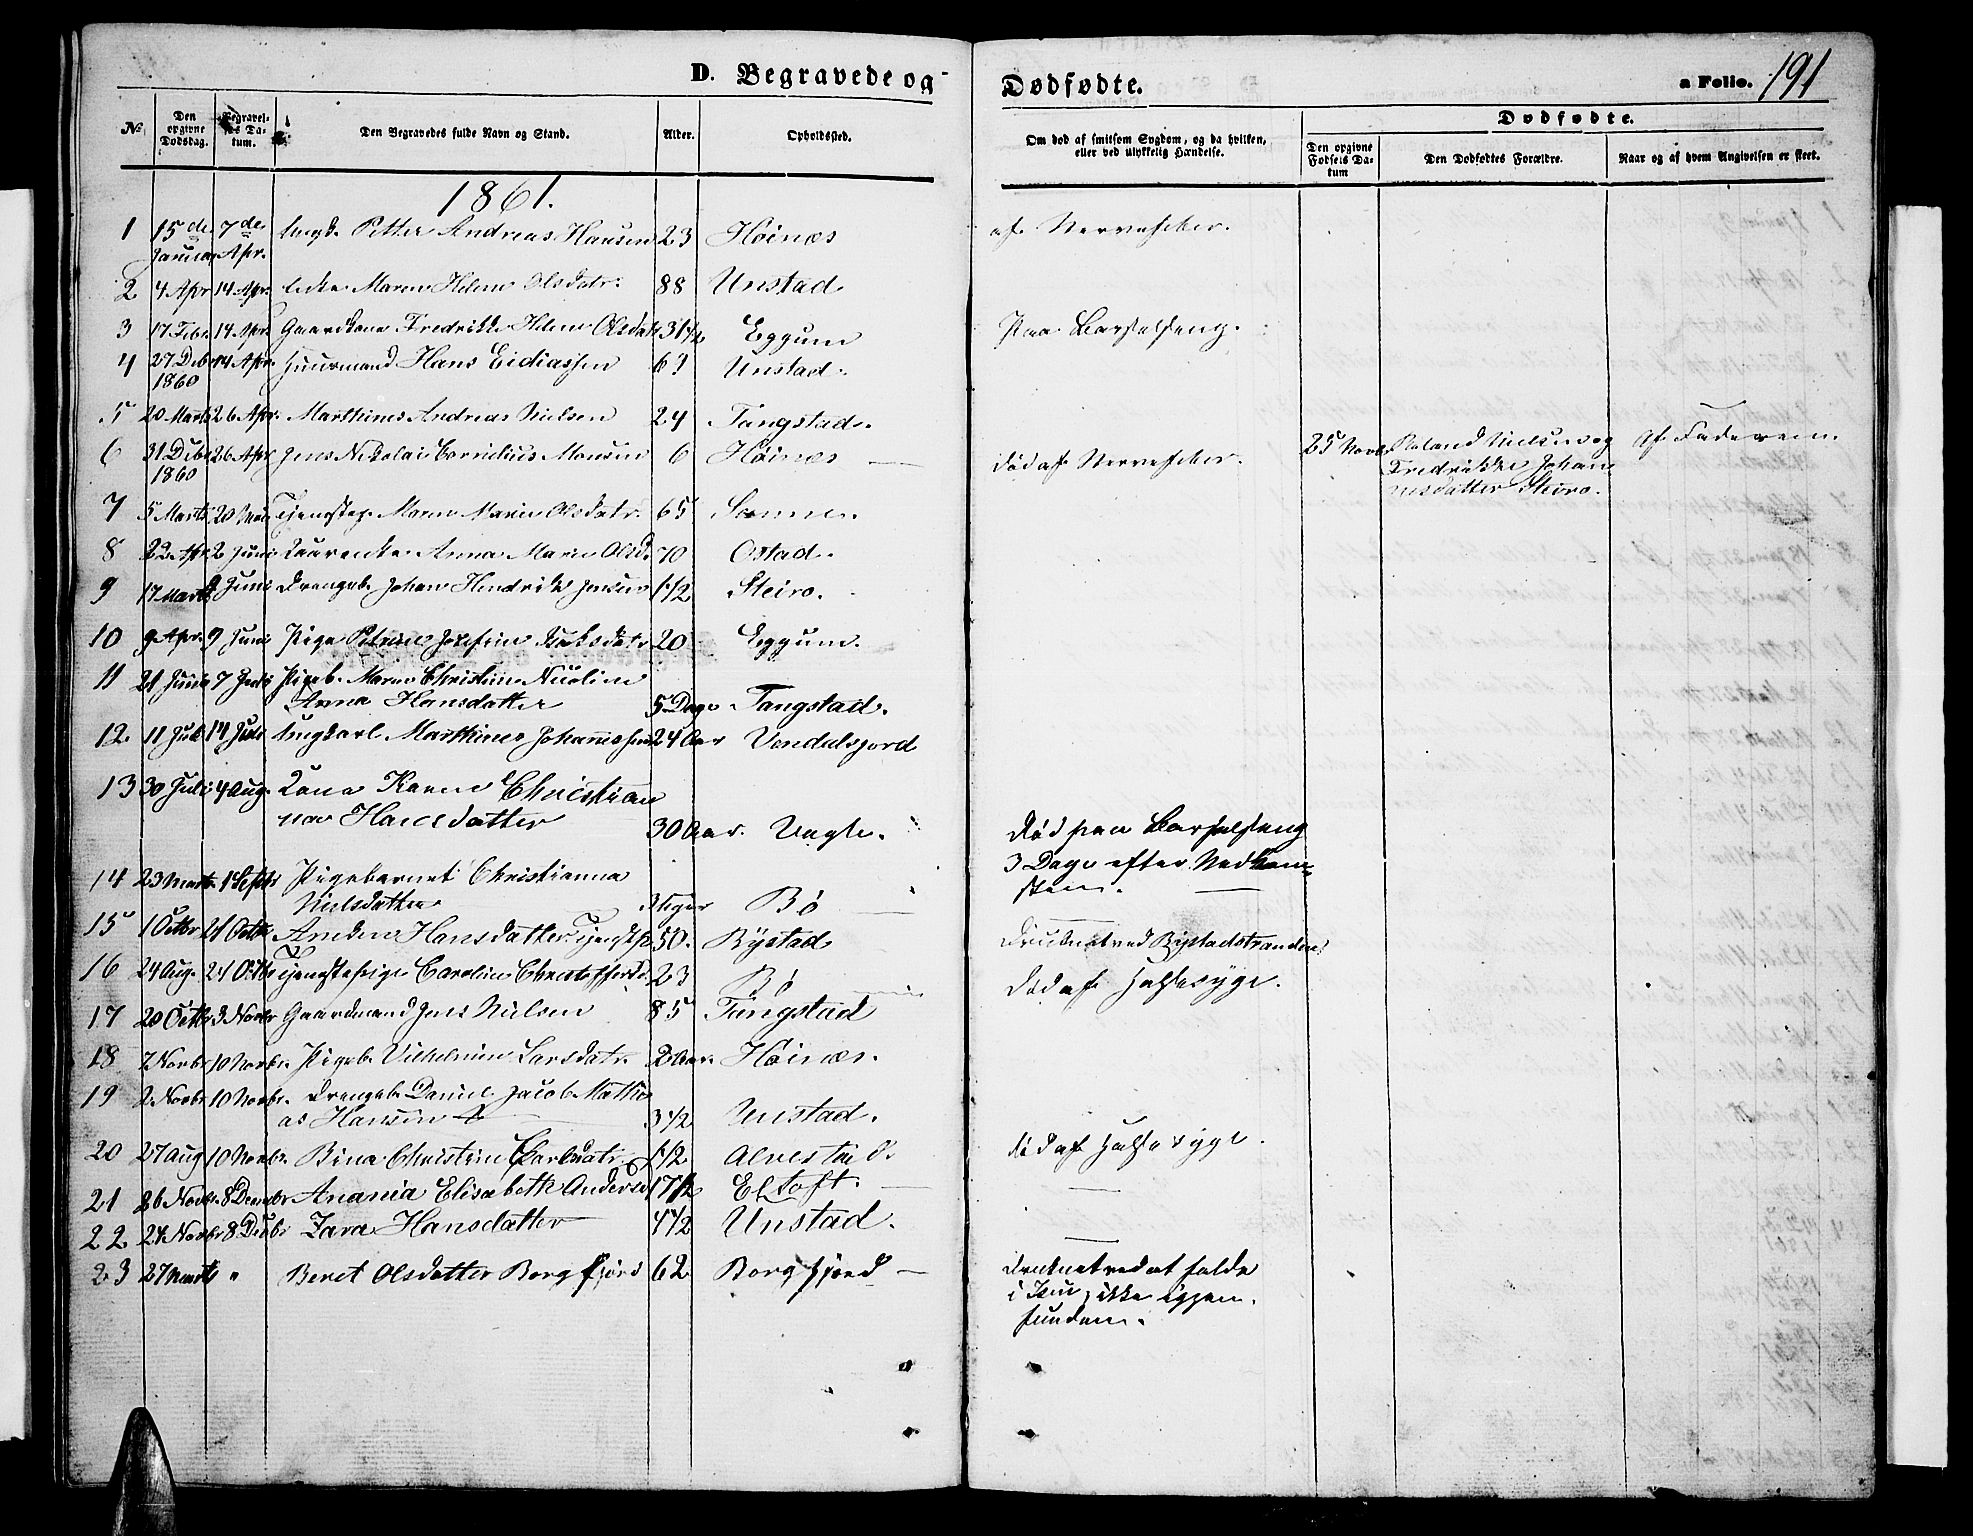 D. Begravede og
Dødfødte.
a Folio. 191
No.
Den opgivne Dødsdag.
Begravelses Datum.
Den Begravedes fulde Navn og Stand.
Alder.
Opholdssted.
Om død af smitsom Sygdom, og da hvilken, eller ved ulykkelig Hændelse.
Dødfødte.
Den opgivne Fødsels Datum
Den Dødfødtes Forældre.
Naar og af hvem Angivelsen er skeet.
1861.
1 15de Januar 7de Apr. Ungk. Petter Andreas Hansen 23 Høinæs af Nervefeber.
2 4 Apr 14 Apr. Enke Maren Helene Olsdatr. 88 Unstad
3 17 Febr. 14 Apr. Gaardkone Fredrikke Helene Olsdatr 31 1/2 Eggum Paa Barselseng.
4 27 Debr 1860 14 Apr. Huusmand Hans Eidiassen 63 Unstad.
5 20 Marts 26 Apr. Marthines Andreas Nielsen 24 Tangstad.
6 31 Debr 1860 26 Apr Jens Nikolai Cornelius Monsen 6 Høinæs død af Nervefeber. 25 Novbr Roland Nielsen og Af Faderen.
Fredrikke Johan
nesdatter Steiro.
7 5 Marts 20 Mai Tjenestep. Maren Marie Olsdatr. 65 Sanne.
8 22 Apr 2 Juni Anna Maren Olsd. 70 Ostad.
9 17 Marts Juni Drengeb. Johan Hendrik Jensen 1 1/2 Steiro.
10 9 Apr. 9 Juni Pige Petrine Josefine 20 Eggum.
11 21 Juni 7 Juli Pigeb. Maren Christine Nicoline
Anna Hansdatter 5 Dage Tangstad.
12. 11 Juli 14 Juli Ungkarl Marthines Johannessen 24 Aar Vendalsjord
13 30 Juli 4 Aug. Kone Karen Christian
na Hansdatter 30 Aar. Vagle. Død paa Barselseng
3 Dage efter Nedkom-
sten.
14 23 Marts 1 Septr Pigebarnet Christianna
Nielsdatter 3 Uger Bø
15 1 Octbr 21 Octbr Hansdatter Tjenestp 50. Rystad Druknet ved Rystadstranden
16 24 Aug. 21 Octbr Tjenestepige Caroline Christoffersd. 23 Bø Død af Halssyge.
17 20 Octbr 3 Novbr Gaardmand Jens Nielsen 85 Tangstad
18 2 Novbr 10 Novbr. Pigeb. Vilhelmine Larsdatr. 2 Aar. Høinæs.
19 2 Novbr 10 Novbr. Drengeb. Daniel Jacob Mathi
as Hansen 3 1/2 Unstad.
20 27 Aug 10 Novbr. Bina Christine Carlsdatr. 1 1/2 Alvestad. død af Halssyge.
21 26 Novbr. 8 Decmbr Anania Elisabeth Andersd 17 1/2 Eltoft.
22 21 Novbr 8 Debr Zara Hansdatter 4 1/2 Unstad.
23 27 Marts " Beret Olsdatter Borgfjord 62 Borgfjord Druknet ved at falde
i Isen, ikke igjen-
funden.